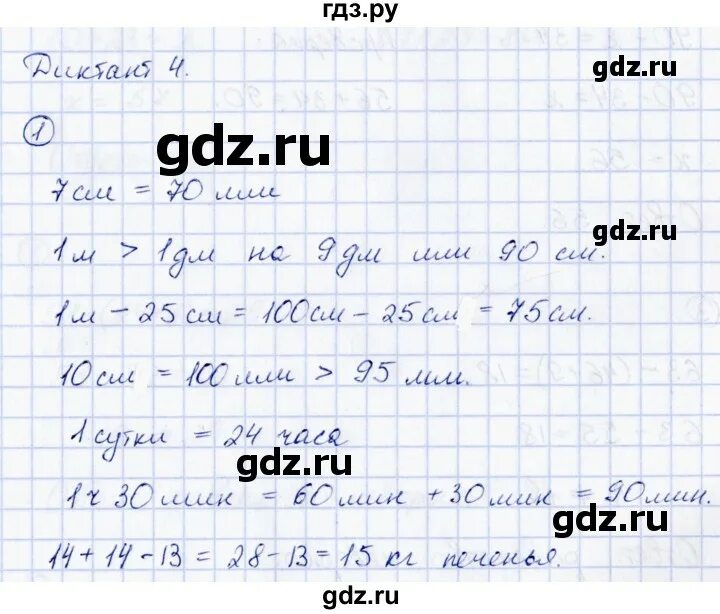 гдз.ру
Диктант 4.
gdz.ru
1
gdz.ru
7см = 70 мм
1м > 1дм на 9дм или 90 см.
gdz.ru
1м - 25см = 100см - 25см = 75см.
10см = 100мм > 95мм.
1 сутки = 24 часа
gdz.ru
1ч 30мин = 60мин + 30мин = 90мин.
gdz.ru
14 + 14 - 13 = 28 - 13 = 15 кг печенья.
gdz.ru